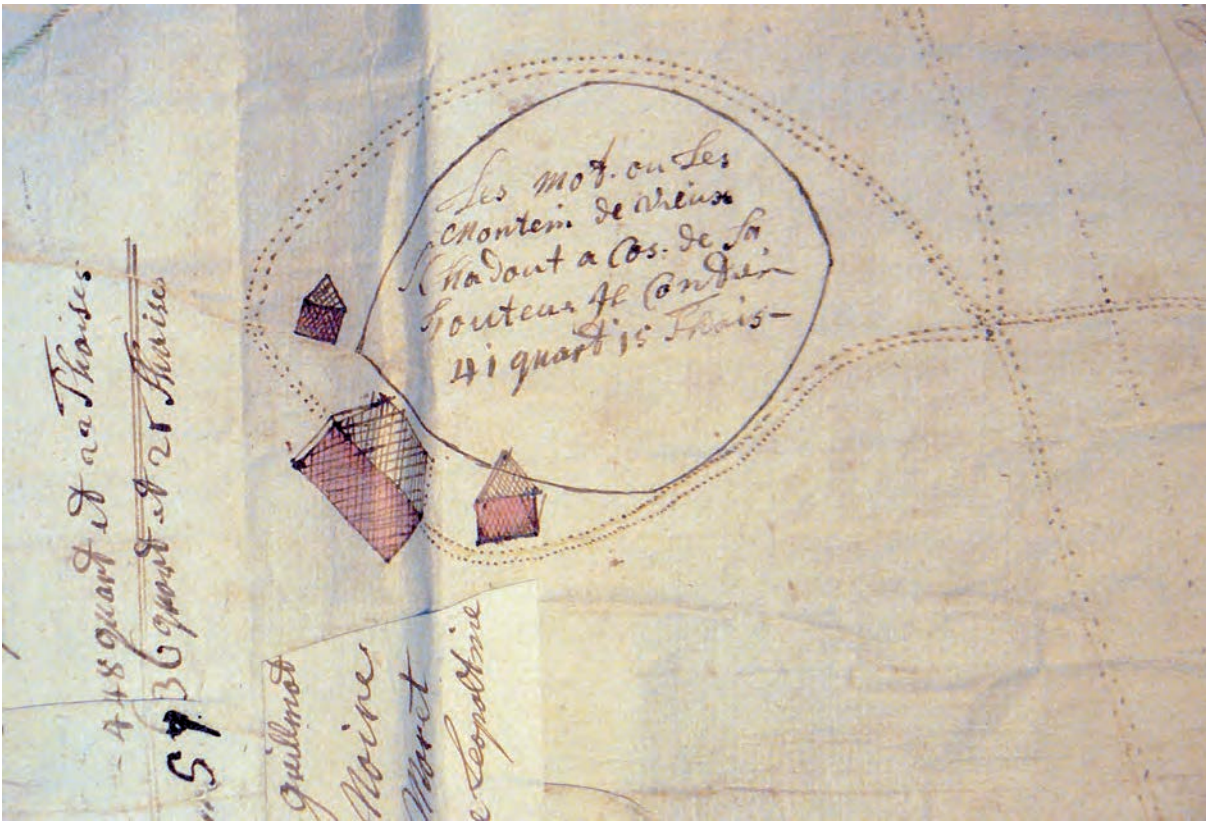 Les mot. ou Les
montein de vieux
Chadout a Cos. de sa
houteur Il Contien
41 quart 15 Thois-
448 quart et 22 Thoises
57 36 quart et 25 Thoises
guillmot
Moine
Moret
e Leopoltine